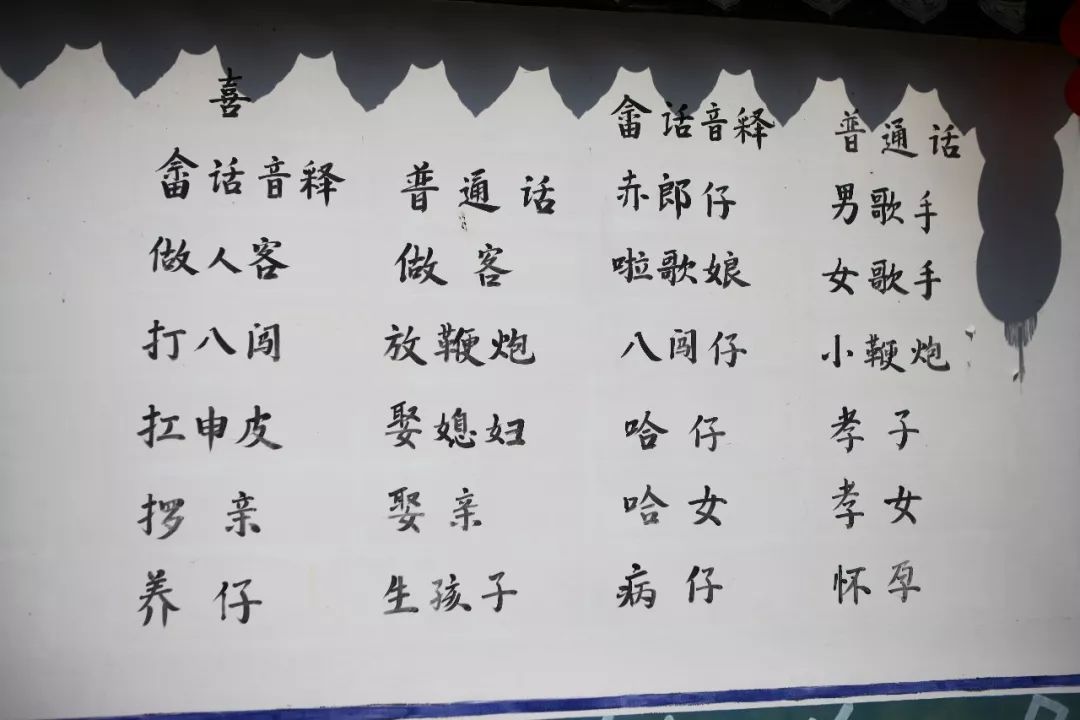 喜
畲话音释 普通话 畲话音释 普通话
做人客 做客 赤郎仔 男歌手
打八闯 放鞭炮 啦歌娘 女歌手
扛申皮 娶媳妇 八闯仔 小鞭炮
亲 娶亲 哈仔 孝子
养仔 生孩子 哈女 孝女
病仔 怀孕